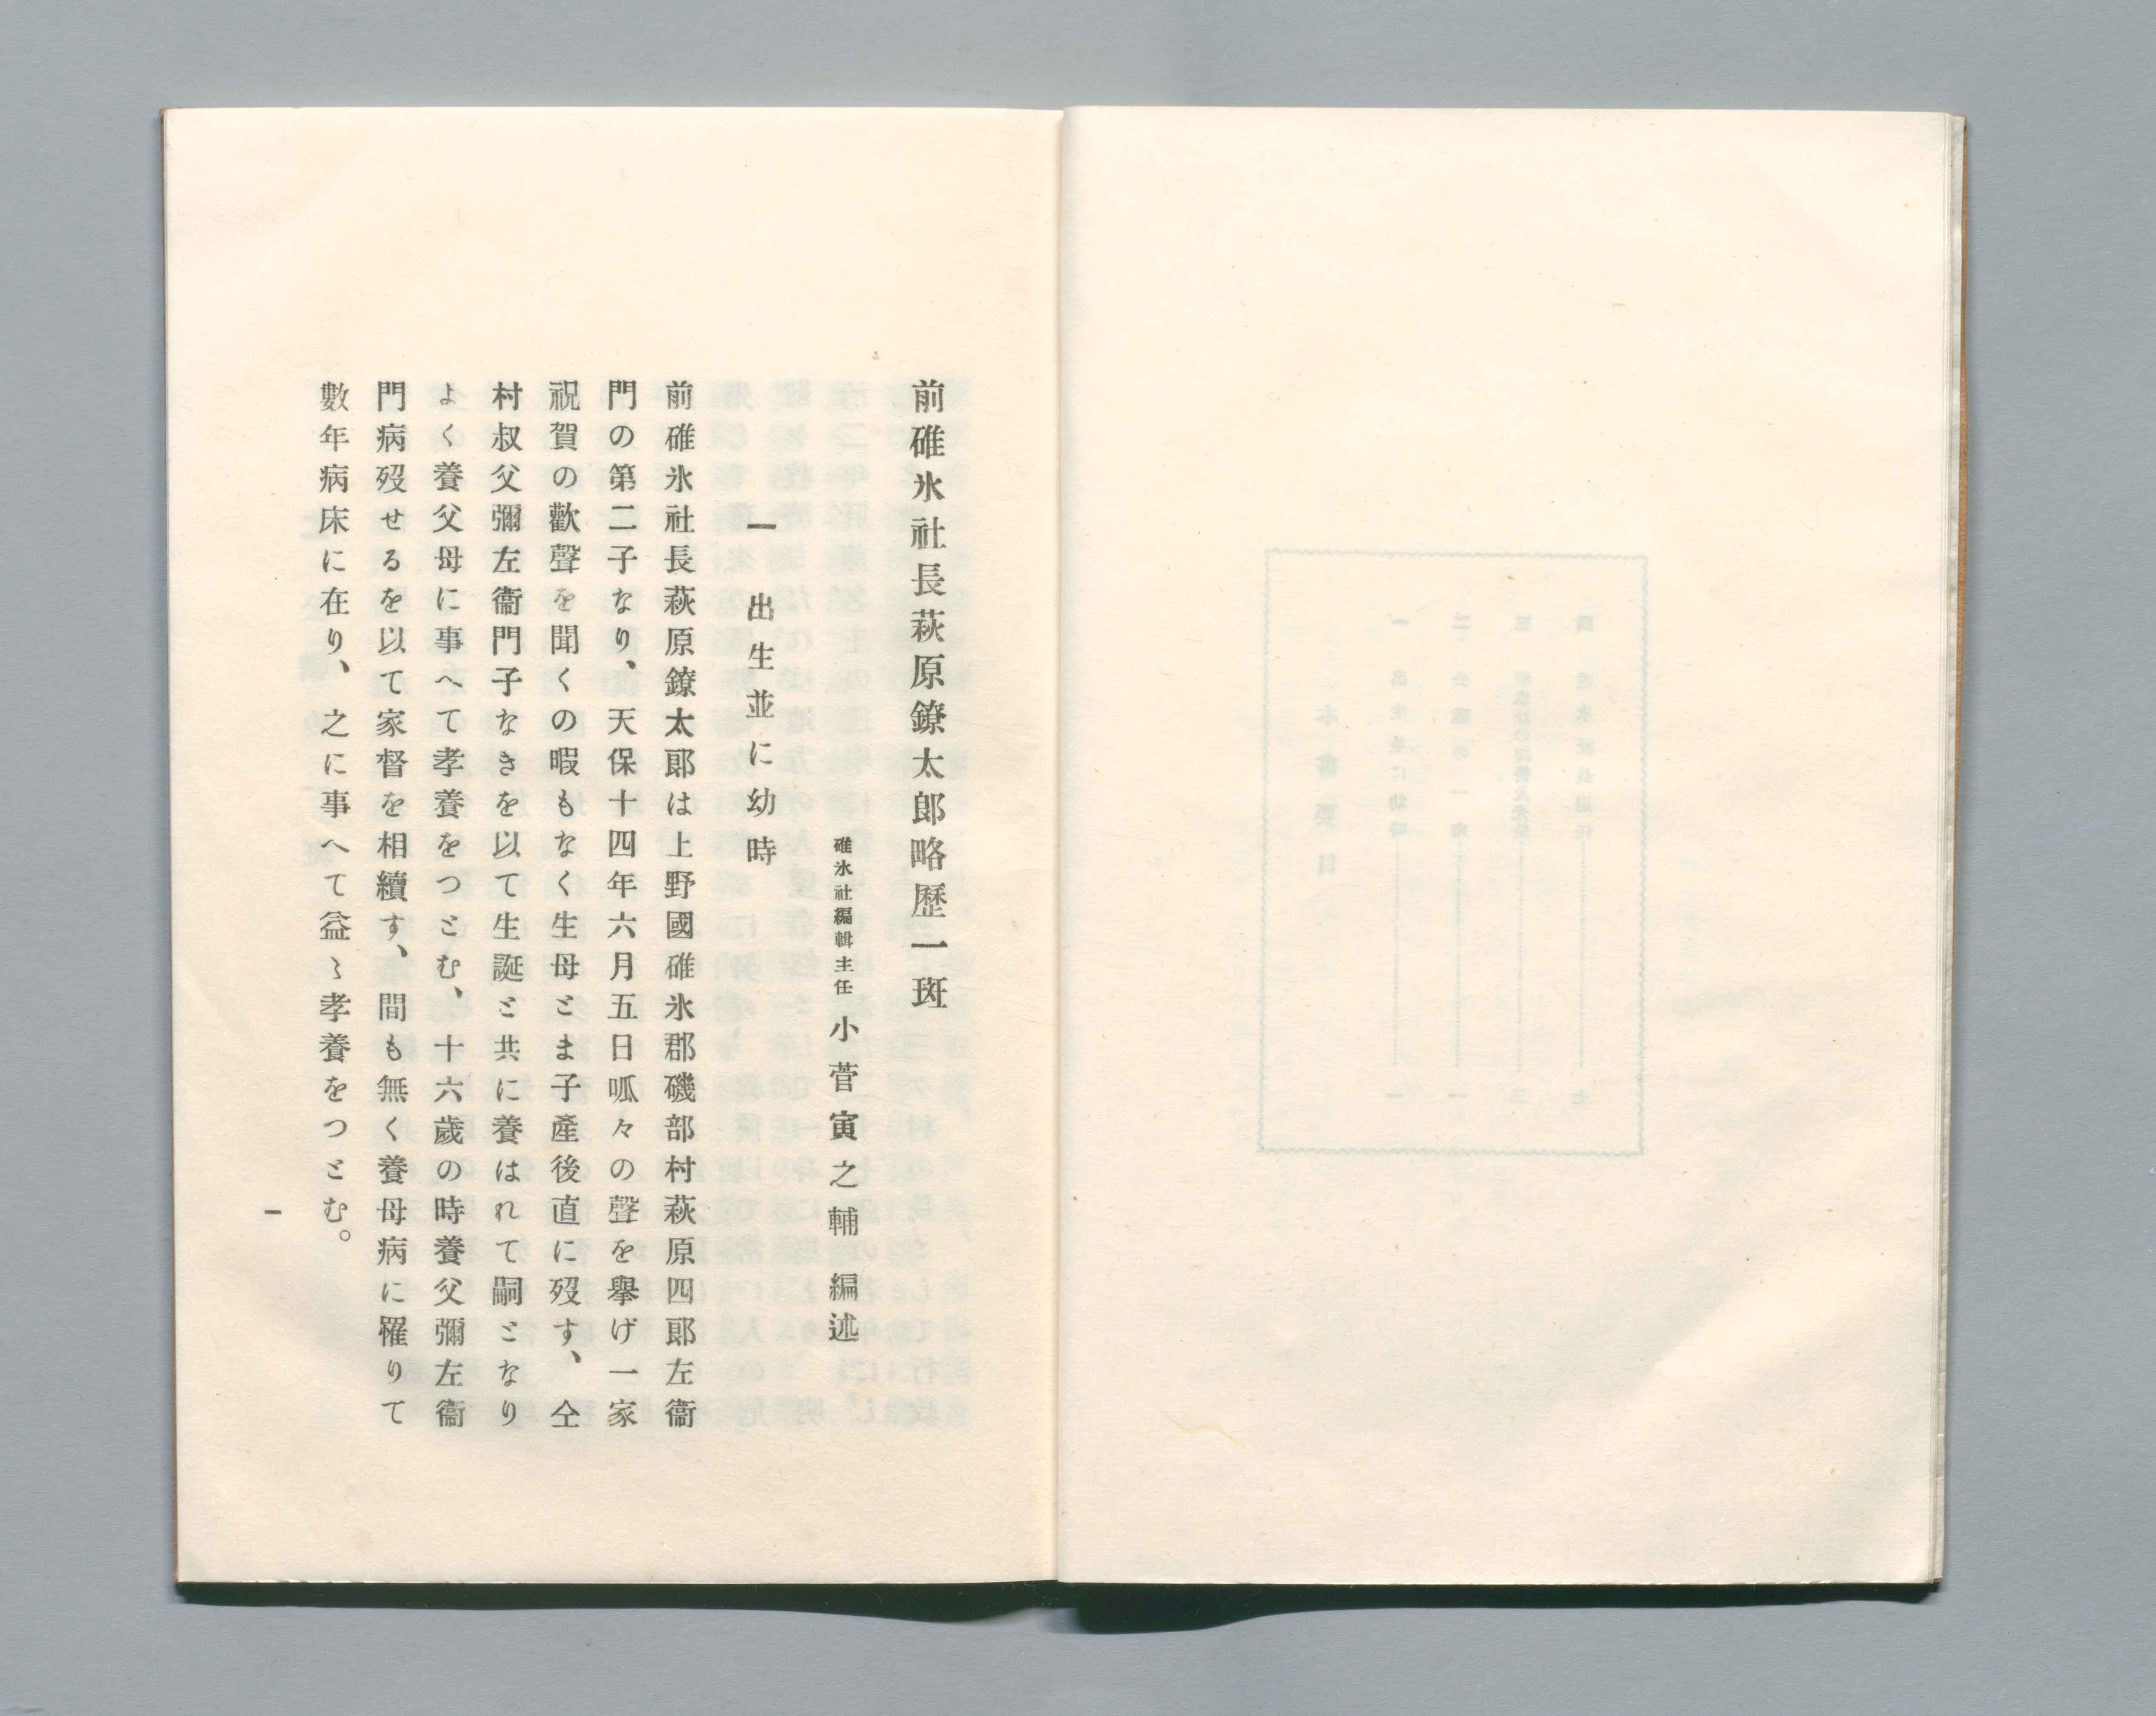 前碓氷社長萩原鐐太郎略歷一斑
碓氷社編輯主任 小菅寅之輔 編述
一 出生並に幼時
前碓氷社長萩原鐐太郞は上野國碓氷郡磯部村萩原四郞左衞
門の第二子なり、天保十四年六月五日呱々の聲を擧げ一家
祝賀の歡聲を聞くの暇もなく生母とま子產後直に歿す、仝
村叔父彌左衞門子なきを以て生誕と共に養はれて嗣となり
よく養父母に事へて孝養をつとむ、十六歲の時養父彌左衞
門病歿せるを以て家督を相續す、間も無く養母病に罹りて
數年病床に在り、之に事へて益〻孝養をつとむ。
一